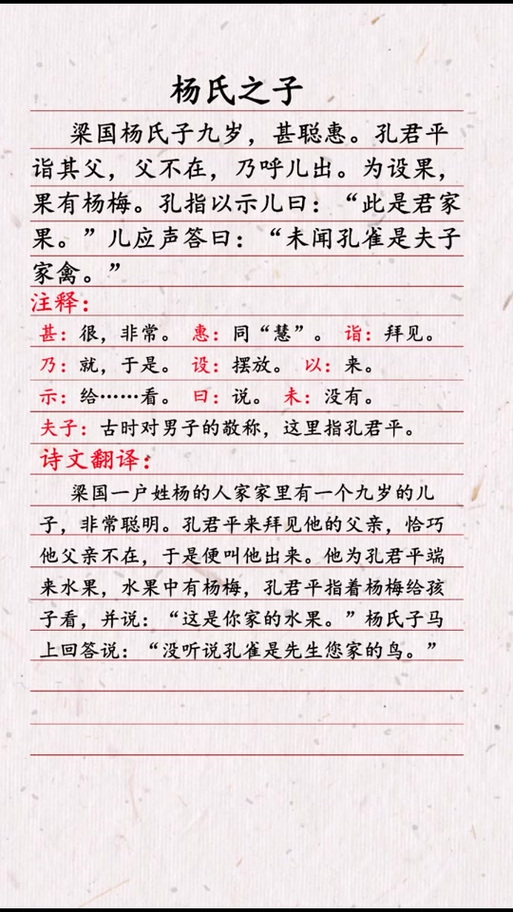 杨氏之子
梁国杨氏子九岁，甚聪惠。孔君平
诣其父，父不在，乃呼儿出。为设果，
果有杨梅。孔指以示儿曰：“此是君家
果。”儿应声答曰：“未闻孔雀是夫子
家禽。”
注释：
甚：很，非常。 惠：同“慧”。 诣：拜见。
乃：就，于是。 设：摆放。 以：来。
示：给……看。 曰：说。 未：没有。
夫子：古时对男子的敬称，这里指孔君平。
诗文翻译：
梁国一户姓杨的人家家里有一个九岁的儿
子，非常聪明。孔君平来拜见他的父亲，恰巧
他父亲不在，于是便叫他出来。他为孔君平端
来水果，水果中有杨梅，孔君平指着杨梅给孩
子看，并说：“这是你家的水果。”杨氏子马
上回答说：“没听说孔雀是先生您家的鸟。”